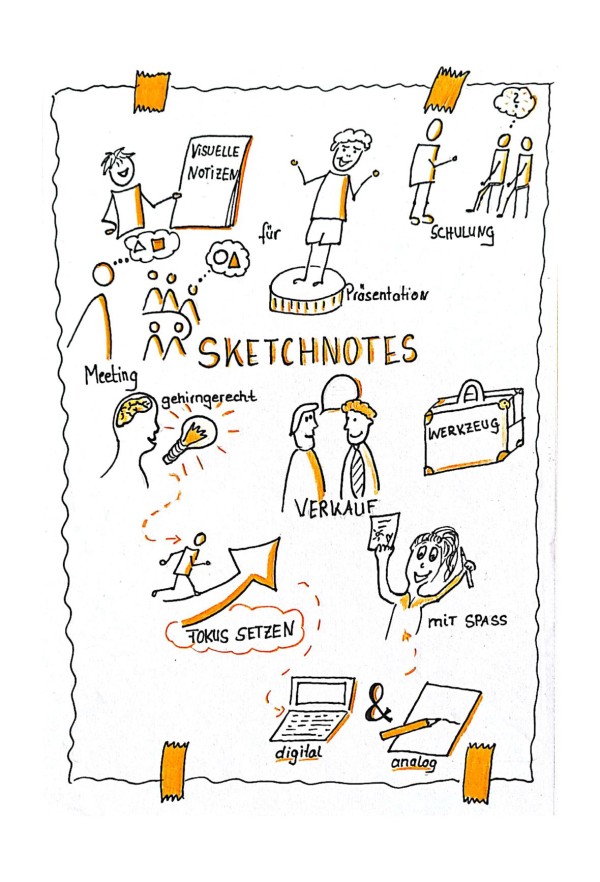 VISUELLE
NOTIZEN
für
?
SCHULUNG
Präsentation
SKETCHNOTES
Meeting
gehirngerecht
WERKZEUG
VERKAUF
FOKUS SETZEN
mit SPASS
&
digital
analog